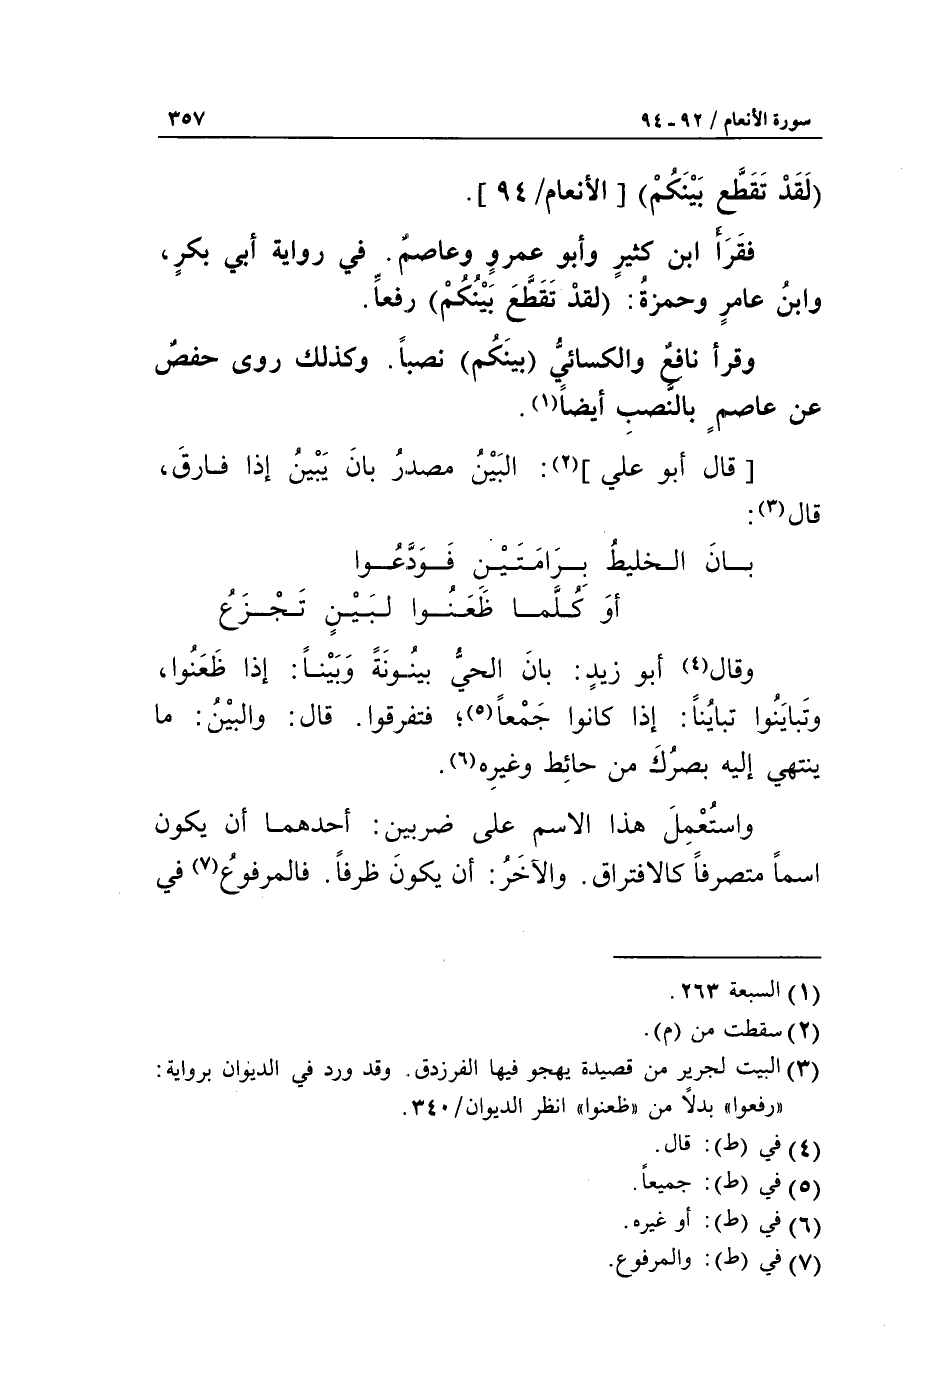 سورة الأنعام / ٩٢ - ٩٤ ٣٥٧
(لَقَدْ تَقَطَّع بَيْنَكُمْ) [ الأنعام/ ٩٤ ].
فقَرَأَ ابن كثيرٍ وأبو عمروٍ وعاصمٌ. في رواية أبي بكرٍ،
وابنُ عامرٍ وحمزةُ: (لقدْ تَقَطَّعَ بَيْنُكُمْ) رفعاً.
وقرأ نافعٌ والكسائيُّ (بينَكُم) نصباً. وكذلك روى حفصٌ
عن عاصمٍ بالنَّصبِ أيضاً(١).
[ قال أبو علي ](٢): البَيْنُ مصدرُ بانَ يَبْينُ إذا فارقَ،
قال(٣):
بانَ الخليطُ بِرَامَتَيْنِ فَوَدَّعُوا
أوَ كُلَّما ظَعَنُوا لبَيْنٍ تَجْزَعُ
وقال(٤) أبو زيدٍ: بانَ الحيُّ بينُونَةً وَبَيْناً: إذا ظَعَنُوا،
وتَبايَنُوا تبايُناً: إذا كانوا جَمْعاً(٥)؛ فتفرقوا. قال: والبْينُ: ما
ينتهي إليه بصرُكَ من حائِط وغيرِه(٦).
واستُعْمِلَ هذا الاسم على ضربين: أحدهما أن يكون
اسماً متصرفاً كالافتراق. والآخَرُ: أن يكونَ ظرفاً. فالمرفوعُ(٧) في
(١) السبعة ٢٦٣.
(٢) سقطت من (م).
(٣) البيت لجرير من قصيدة يهجو فيها الفرزدق. وقد ورد في الديوان برواية:
«رفعوا» بدلاً من «ظعنوا» انظر الديوان/ ٣٤٠.
(٤) في (ط): قال.
(٥) في (ط): جميعاً.
(٦) في (ط): أو غيره.
(٧) في (ط): والمرفوع.